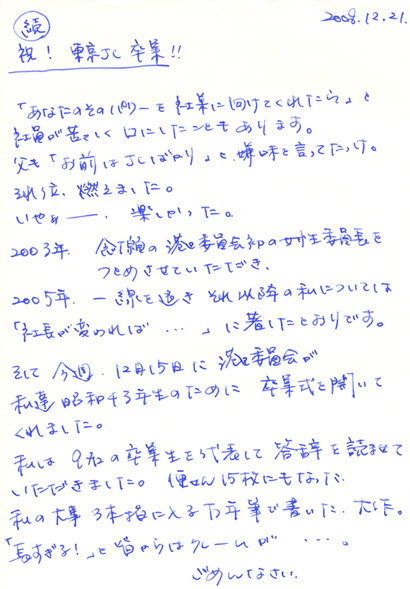 続
2008.12.21.
祝！ 東京JC 卒業!!
「あなたのそのパワーを社業に向けてくれたら」と
社員が苦々しく口にしたこともあります。
父も「お前はJCばかり」と、嫌味を言ってたっけ。
それ位、燃えました。
いやぁ――、楽しかった。
2003年、念願の港区委員会初の女性委員長を
つとめさせていただき、
2005年、一線を退き それ以降の私については
「社長が変われば … 」に著したとおりです。
そして 今週、12月15日に 港区委員会が
私達 昭和43年生のために 卒業式を開いて
くれました。
私は 9名の卒業生を代表して 答辞を読ませて
いただきました。 便せん15枚にもなった、
私の大事 3本指に入る万年筆で書いた、大作。
「長すぎる！」と皆からはクレームが ･･･。
ごめんなさい。